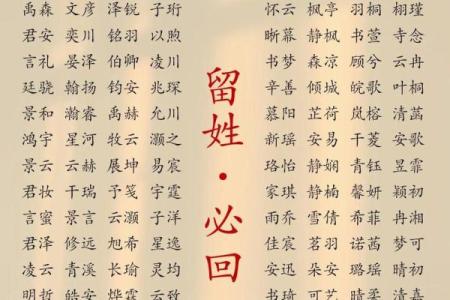 禹森 文彦 泽锐 子珩
君安 奕川 铭羽 以煦
言礼 晏泽 伯卿 凌川
廷骁 翰扬 钧安 兆琛
景和 瀚睿 禹赫 允川
鸿宇 星河 牧云 灏之
景云 云赫 展坤 易宸
君妆 千瑞 予笺 宇霆
言蜜 景言 云灏 子洋
君泽 修远 旭希 星逸
凌云 青溪 长瑜 灵均
明哲 皓安 烨霖 云
留姓·必回
怀云 枫亭 羽桐 栩瑾
晰幕 静枫 书萱 寺念
书梦 森凉 顾兮 云冉
辛善 倾城 皖歌 叶桐
慕阳 芷荷 岚榕 清菡
新瑶 安易 干菱 安歌
珞怡 静娴 青钰 昱霏
家琪 静楠 馨妍 颖初
雨乔 雪倩 希菲 冉湘
佳宸 茗羽 诺茜 梦可
安迅 朵安 璐瑶 晴初
书琦 艺可 若 清嘉